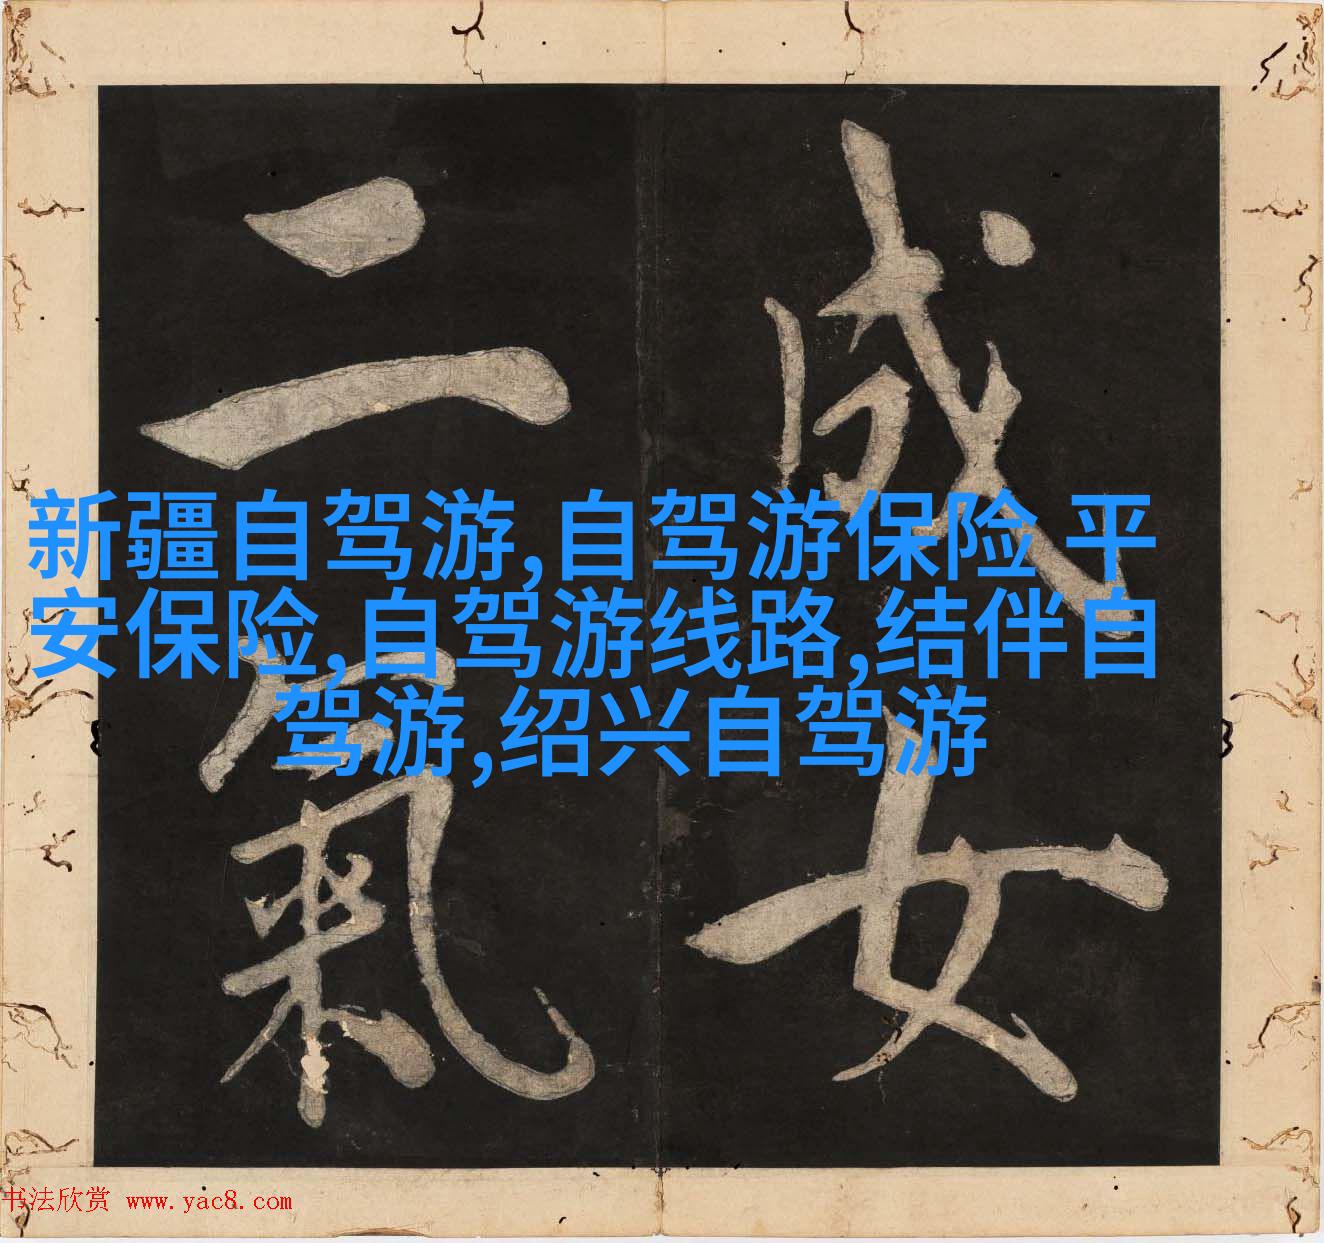 成女
二氣
新疆自驾游,自驾游保险 平
安保险,自驾游线路,结伴自
驾游,绍兴自驾游
书法欣赏 www.yac8.com